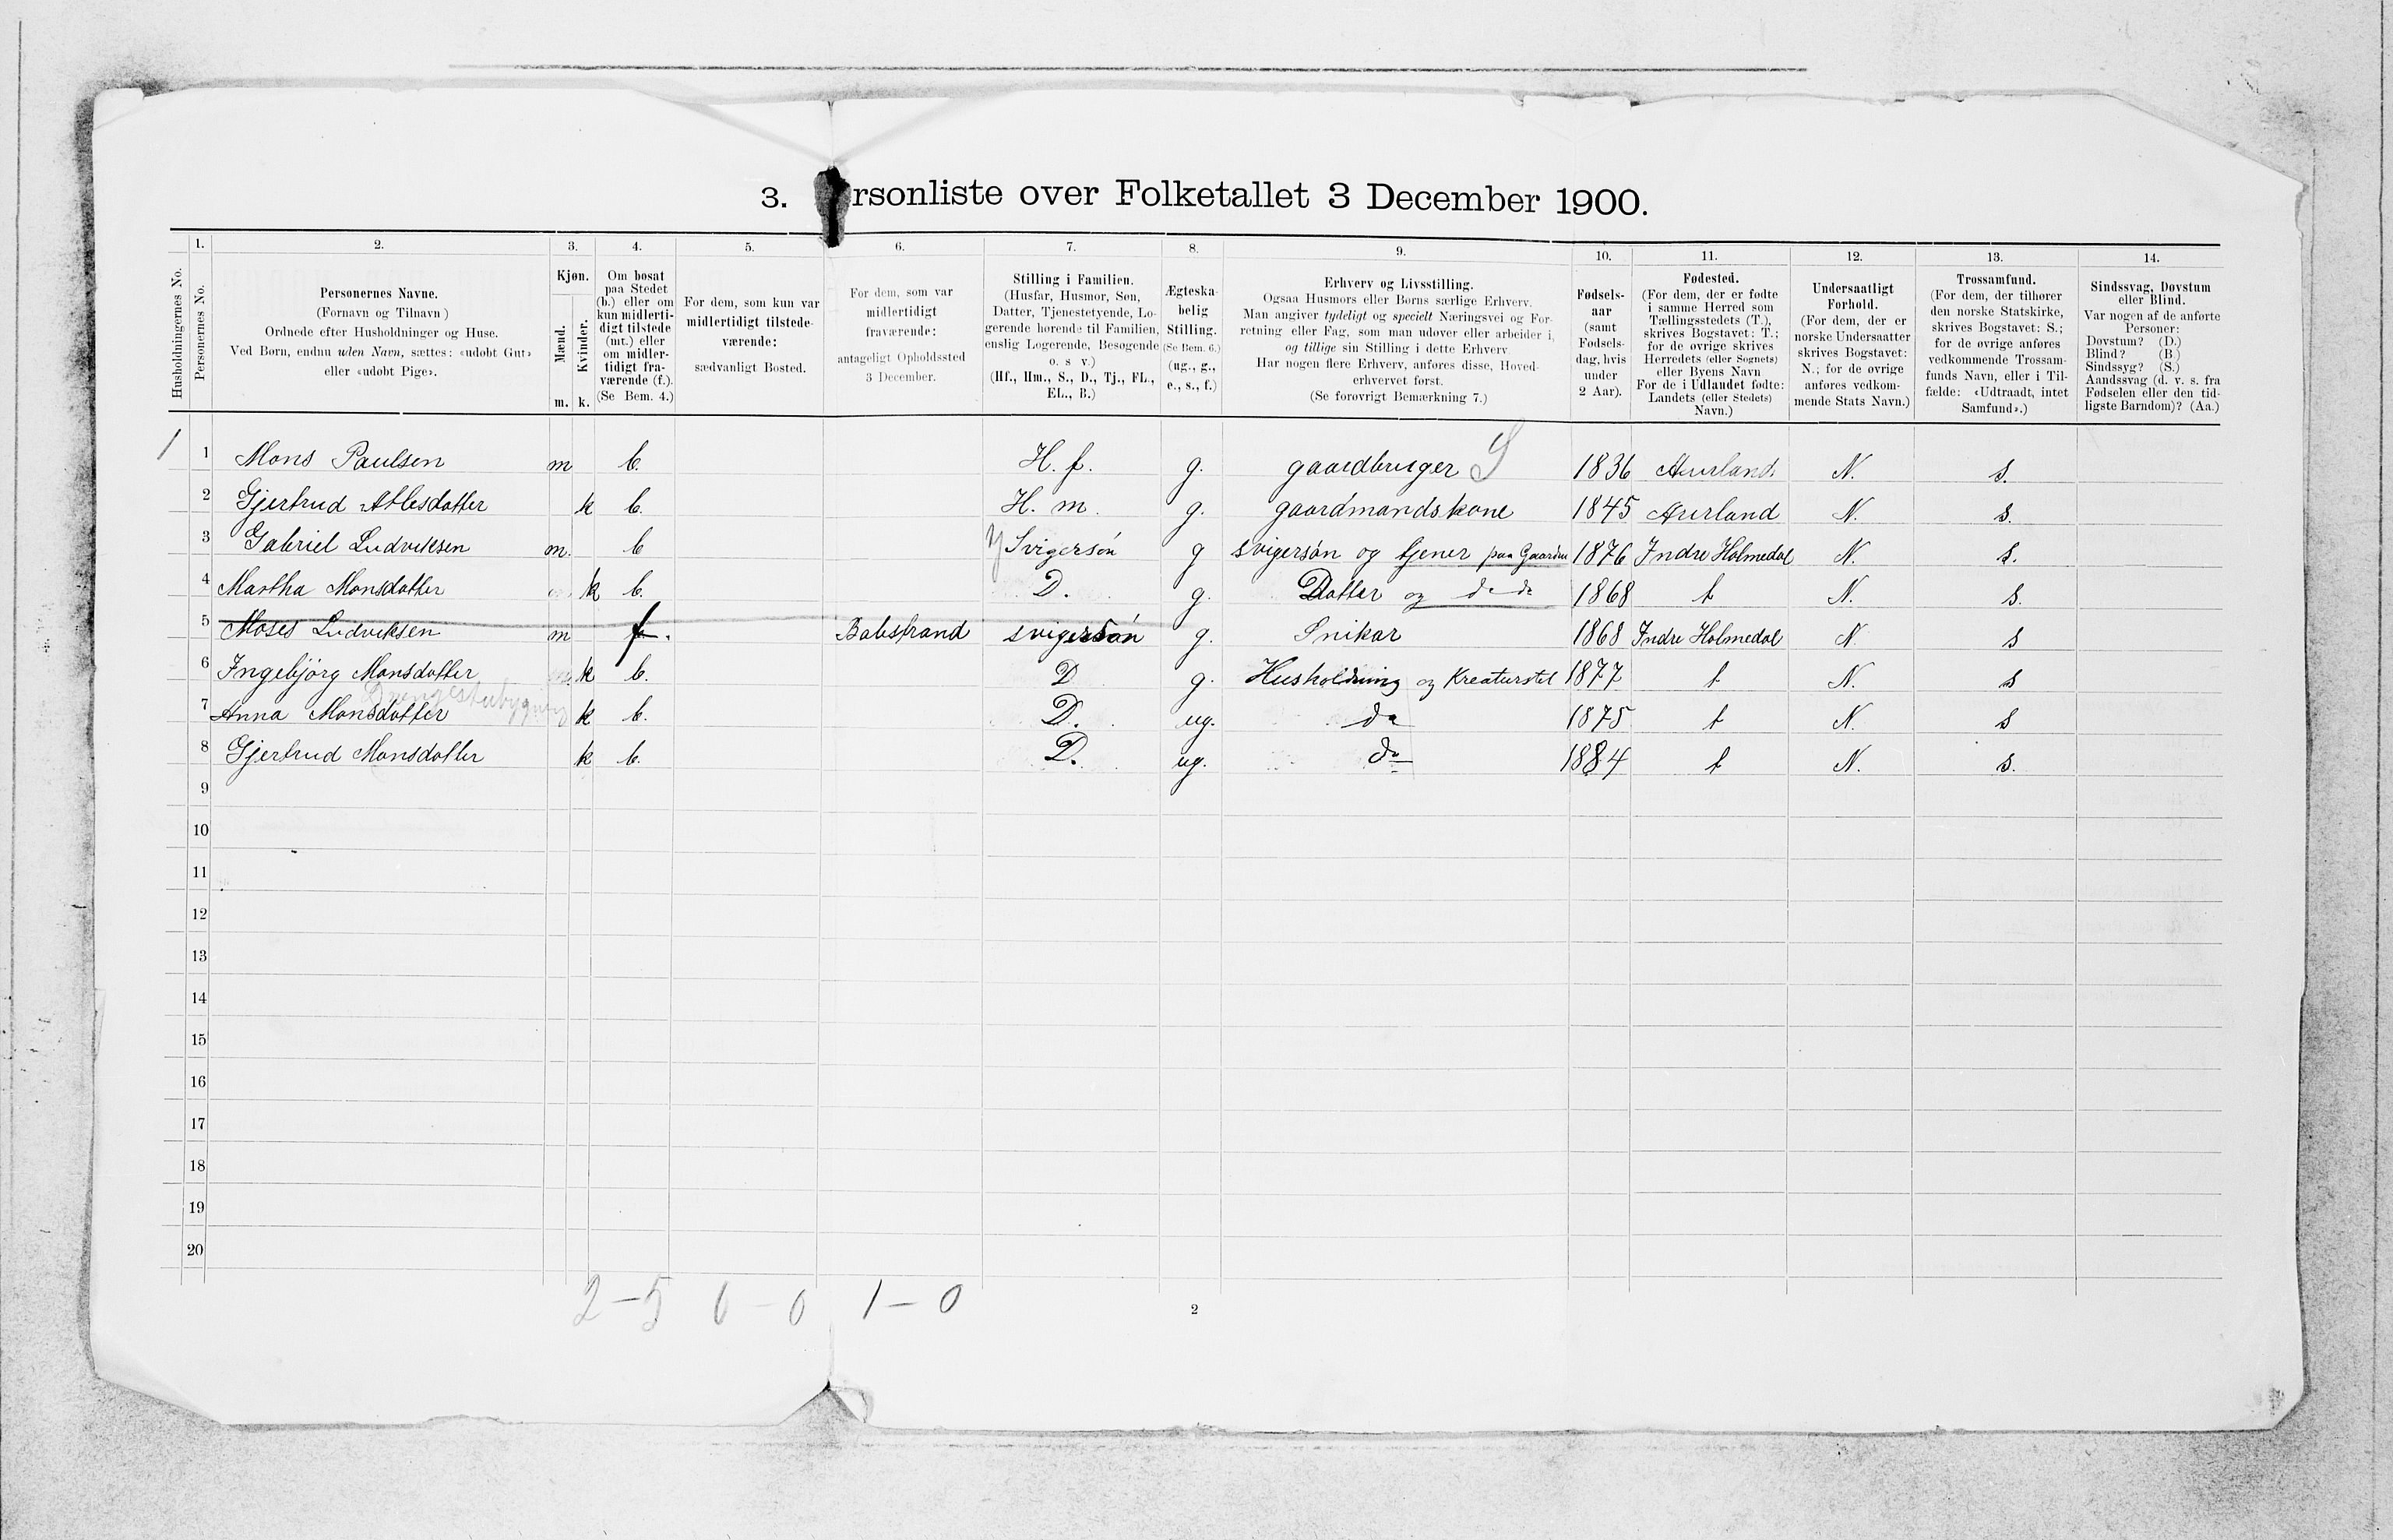 3. rsonliste over Folketallet 3 December 1900.
1. 2. 3. 4. 5. 6. 7. 8. 9. 10. 11. 12. 13. 14.
Husholdningernes No.
Personernes No.
Personernes Navne.
(Fornavn og Tilnavn)
Ordnede efter Husholdninger og Huse.
Ved Børn, endnu uden Navn, sættes: «udøbt Gut»
eller «udøbt Pige».
Kjøn.
Mænd.
Kvinder.
m. k.
Om bosat
paa Stedet
(b.) eller om
kun midlerti-
digt tilstede
(mt.) eller
om midler-
tidigt fra-
værende (f.).
(Se Bem. 4.)
For dem, som kun var
midlertidigt tilstede-
værende:
sædvanligt Bosted.
For dem, som var
midlertidigt
fraværende:
antageligt Opholdssted
3 December.
Stilling i Familien.
(Husfar, Husmor, Søn,
Datter, Tjenestetyende, Lo-
gerende hørende til Familien,
enslig Logerende, Besøgende
o. s v.)
(Hf., Hm., S., D., Tj., FL.,
EL., B.)
Ægteska-
belig
Stilling.
(Se Bem. 6.)
(ug., g.,
e., s., f.)
Erhverv og Livsstilling.
Ogsaa Husmors eller Børns særlige Erhverv.
Man angiver tydeligt og specielt Næringsvei og For-
retning eller Fag, som man udøver eller arbeider i,
og tillige sin Stilling i dette Erhverv.
Har nogen flere Erhverv, anføres disse, Hoved-
erhvervet først.
(Se forøvrigt Bemærkning 7.)
Fødsels-
aar
(samt
Fødsels-
dag, hvis
under
2 Aar).
Fødested.
(For dem, der er fødte
i samme Herred som
Tællingsstedets (T.),
skrives Bogstavet: T.;
for de øvrige skrives
Herredets (eller Sognets)
eller Byens Navn
For de i Udlandet fødte:
Landets (eller Stedets)
Navn.)
Undersaatligt
Forhold.
(For dem, der er
norske Undersaatter
skrives Bogstavet:
N.; for de øvrige
anføres vedkom-
mende Stats Navn.)
Trossamfund.
(For dem, der tilhører
den norske Statskirke,
skrives Bogstavet: S.;
for de øvrige anføres
vedkommende Trossam-
funds Navn, eller i Til-
fælde: «Udtraadt, intet
Samfund».)
Sindssvag, Døvstum
eller Blind.
Var nogen af de anførte
Personer:
Døvstum? (D.)
Blind? (B.)
Sindssyg? (S.)
Aandssvag (d. v. s. fra
Fødselen eller den tid-
ligste Barndom)? (Aa.)
1 1 Mons Paulsen m b. H. f. g. gaardbruger S 1836 Aurland N. s.
2 Gjertrud Atlesdatter k b. H. m. g. gaardmandskone 1845 Aurland N. s.
3 Gabriel Ludviksen m. b Svigersøn g svigersøn og tjener paa Gaarden 1876 Indre Holmedal N. s.
4 Martha Monsdatter k b. D. g. Datter og do do 1868 t N. s.
5 Moses Ludviksen m f. Balestrand svigersøn g. Snikar 1868 Indre Holmedal N s
6 Ingebjørg Monsdatter k b. D g. Husholdning og Kreaturstel 1877 t N. s
7 Anna Monsdatter k b. D. ug. do 1875 t N. s
8 Gjertrud Monsdatter k b. D. ug. do 1884 t N. s.
9
10
11
12
13
14
15
16
17
18
19
20
2 – 5 0 – 0 1 – 0
2